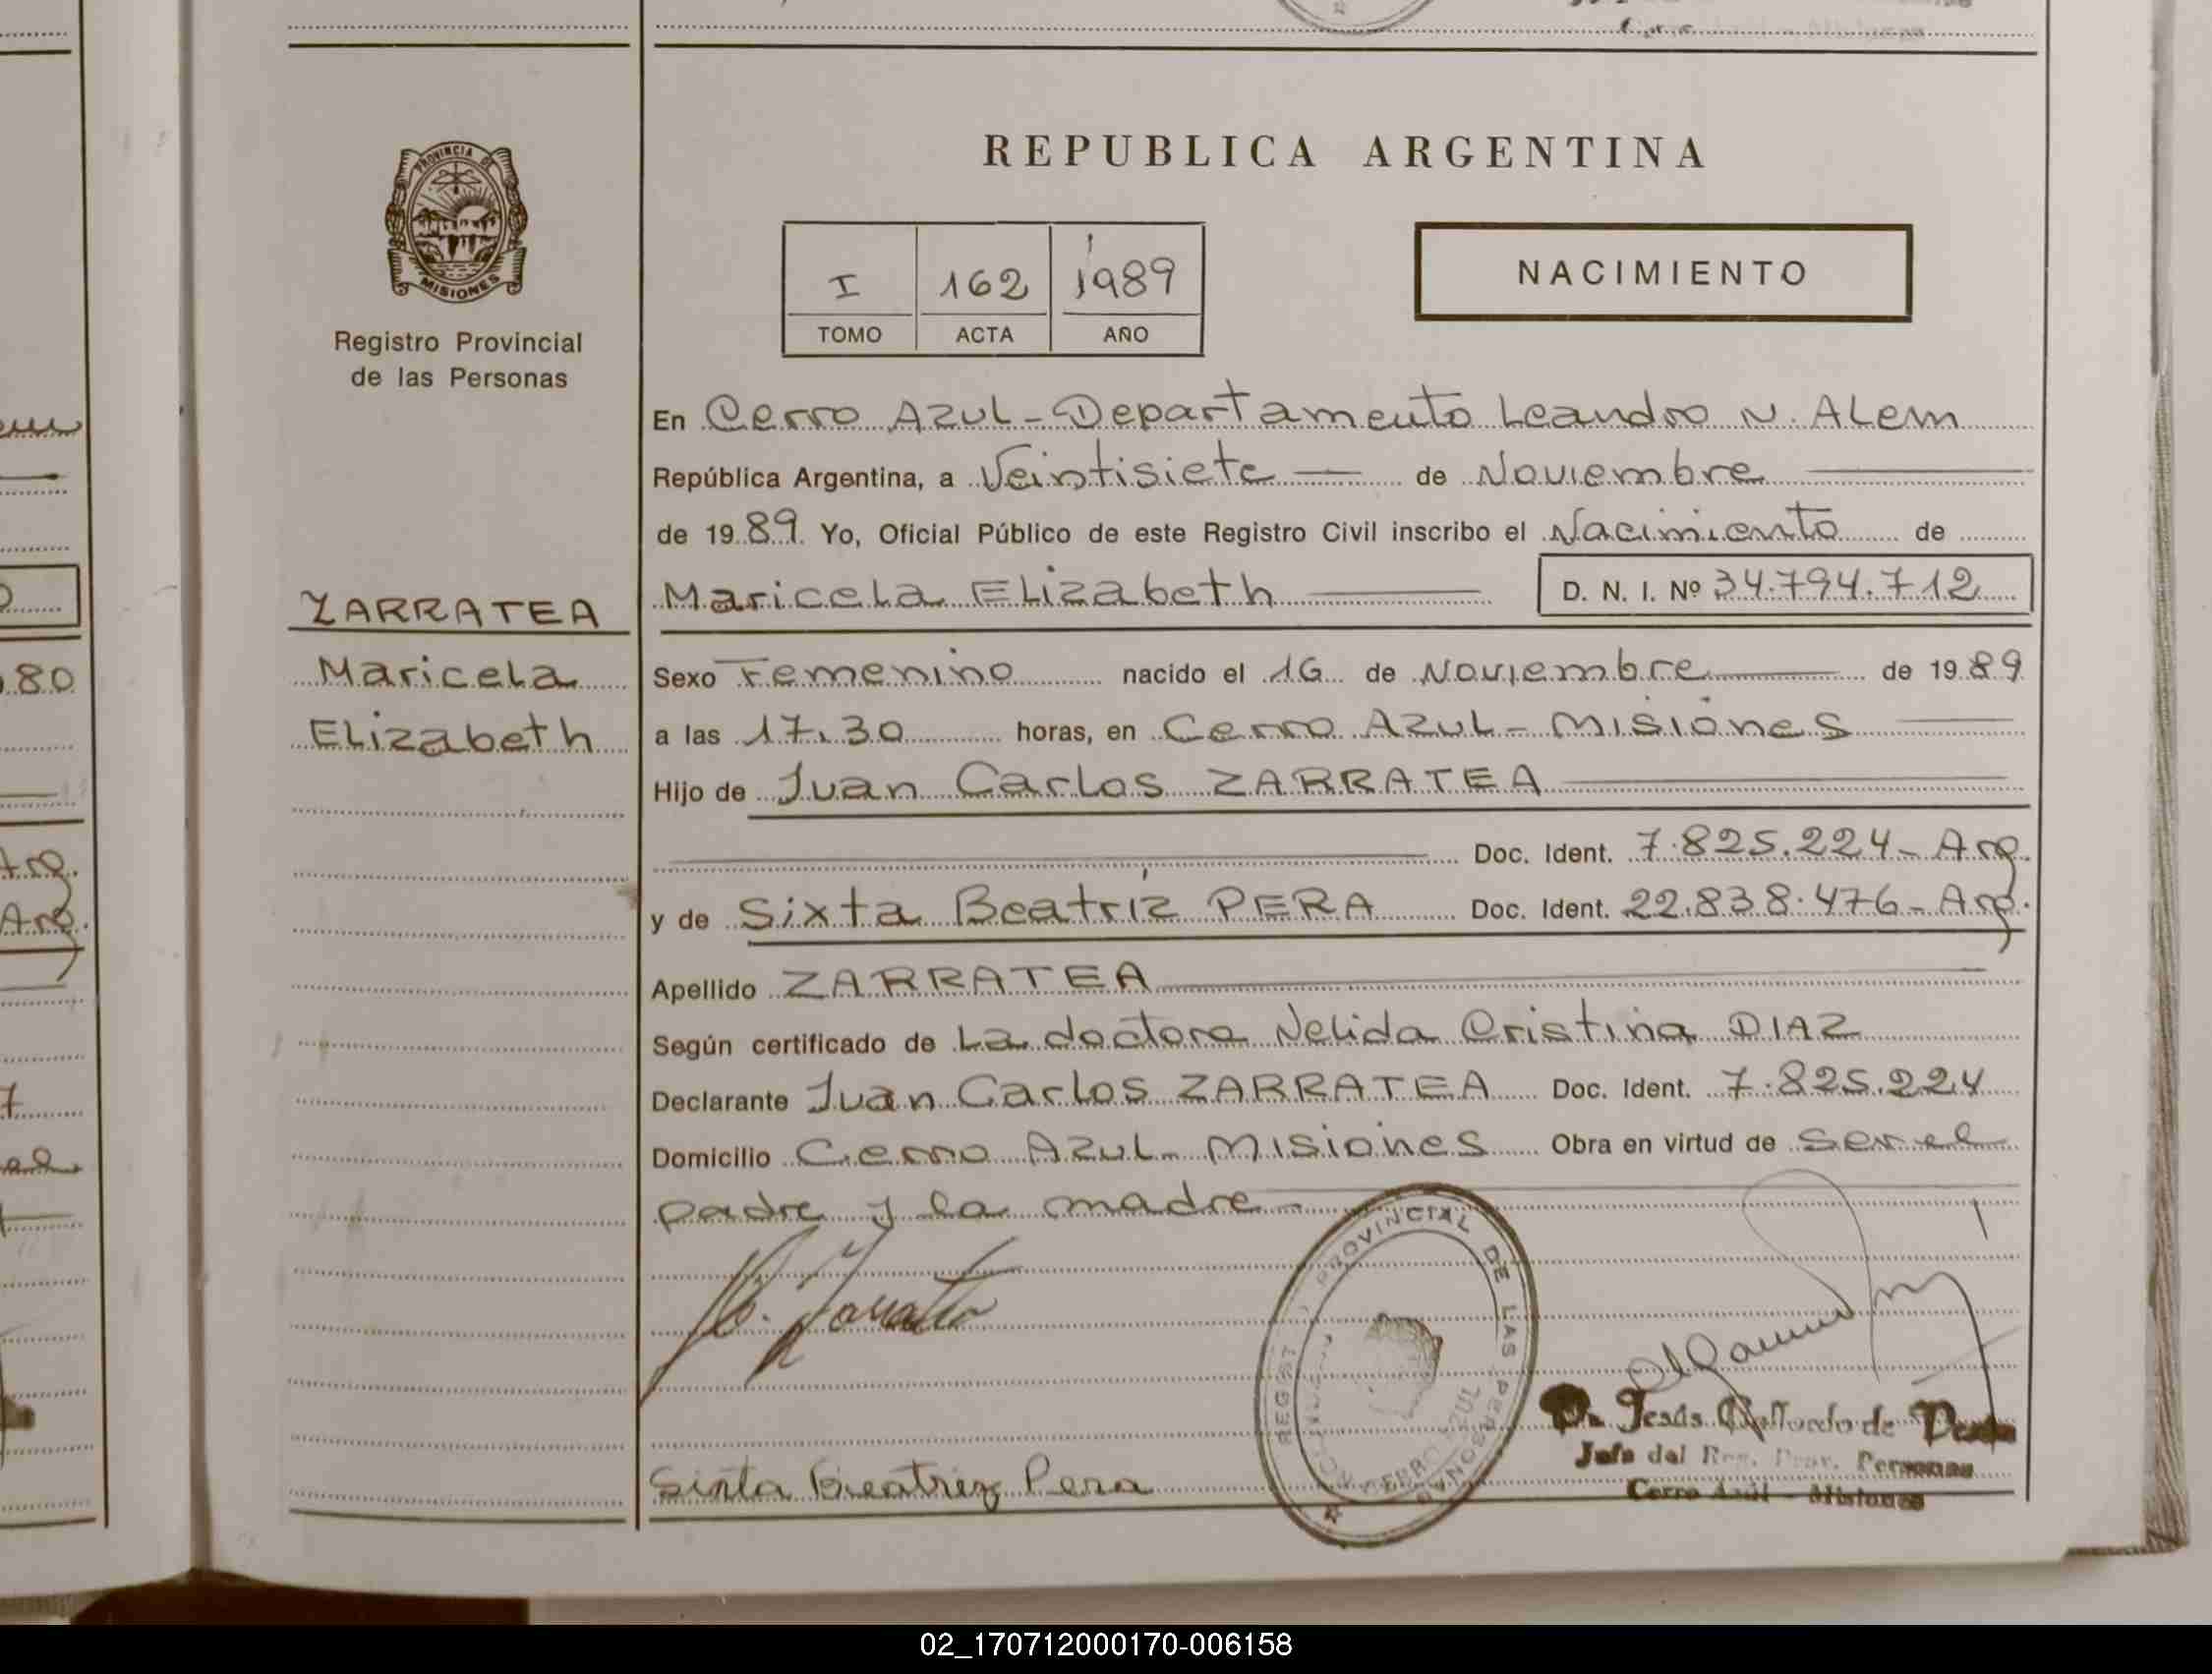 REPUBLICA ARGENTINA
PROVINCIA DE
MISIONES
Registro Provincial
de las Personas
I 162 1989
TOMO ACTA AÑO
NACIMIENTO
En Cerro Azul - Departamento Leandro N. Alem
República Argentina, a Veintisiete de Noviembre
de 19 89 Yo, Oficial Público de este Registro Civil inscribo el Nacimiento de
ZARRATEA
Maricela Elizabeth D. N. I. Nº 34.794.712
Maricela
Elizabeth
Sexo Femenino nacido el 16 de Noviembre de 19 89
a las 17.30 horas, en Cerro Azul - Misiones
Hijo de Juan Carlos ZARRATEA
Doc. Ident. 7.825.224 - Arg.
y de Sixta Beatríz PERA Doc. Ident. 22.838.476 - Arg.
Apellido ZARRATEA
Según certificado de La doctora Nelida Cristina DIAZ
Declarante Juan Carlos ZARRATEA Doc. Ident. 7.825.224
Domicilio Cerro Azul - Misiones Obra en virtud de ser el
padre y la madre -
PROVINCIAL DE LAS PERSONAS
CERRO AZUL
Jesús de
Jefa del Reg. Prov. Personas
Cerro Azúl - Misiones
Sixta Beatriz Pera
80
Arg.
Arg.
02_170712000170-006158